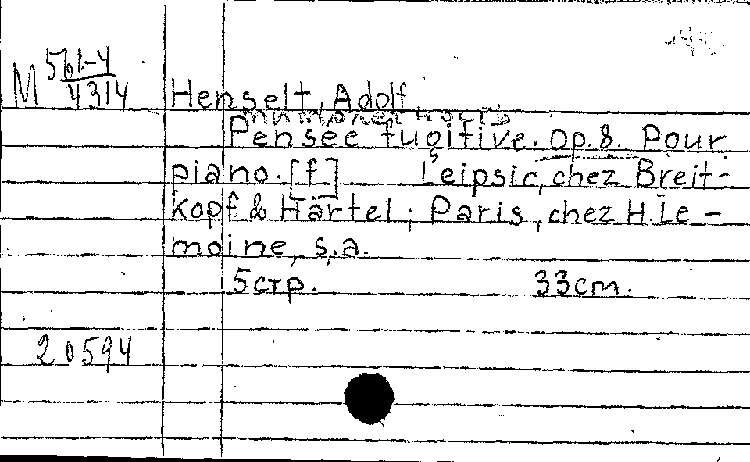 M 561-4
4314
Henselt, Adolf.
Pensée fugitive. Op. 8. Pour
piano. [f] Leipsic, chez Breit-
kopf & Härtel; Paris, chez H. Le-
moine, s.a.
5 стр. 33 cm.
20594